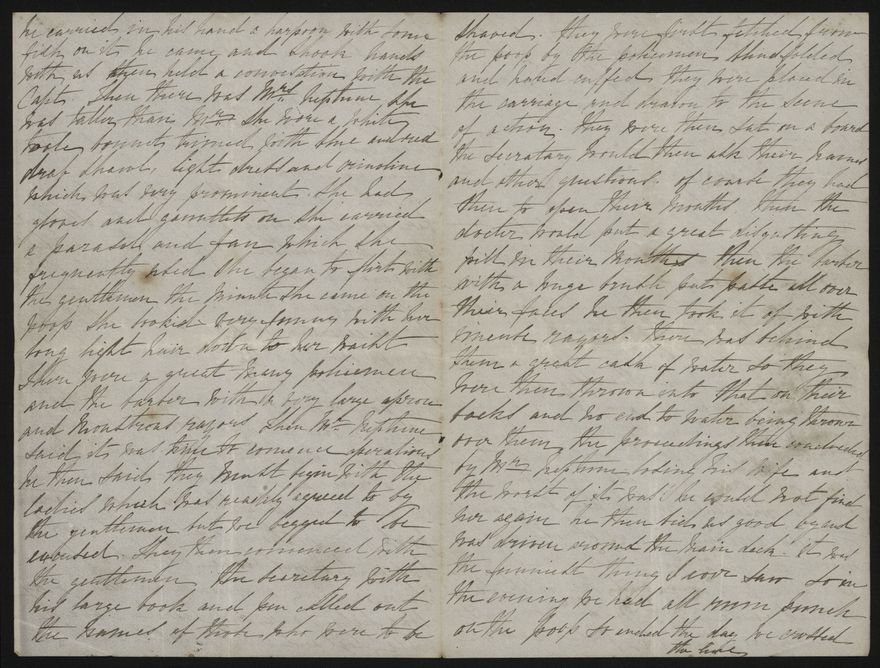 he carried in his hand a harpoon with some
fish on it he came and shook hands
with us then held a conversation with the
Capt. Then there was Mrs Neptune she
was taller than Mr. She wore a white
bonnet trimed with blue and red
drab shawl, light dress and crinoline
which was very prominent. She had
gloves and gauntlets on she carried
a parasol and fan which she
frequently used she began to flirt with
the gentlemen the minute she came on the
poop she looked very funny with her
long light hair down to her waist
There were a great many policemen
and the barber with a very large apron
and monstrous razors. Then Mr Neptune
said it was time to comence operations
he then said they must begin with the
ladies which was readily agreed to by
the gentlemen but we begged to be
excused. They then commenced with
the gentlemen the secretary with
his large book and pen called out
the names of those who were to be
shaved. they were first fetched from
the poop by the policemen blindfolded
and hand cuffed they were placed in
the carriage and drawn to the scene
of action. They were then sat on a board
the Secretary would then ask their names
and other questions. of course they had
then to open their mouths. then the
doctor would put a great disgusting
pill in their mouths then the barber
with a huge brush puts paste all over
their faces he then took it of with
razors. There was behind
them a great cask of water so they
were then thrown into that on their
backs and no end to water being thrown
over them, the proceedings then concluded
by Mr Neptune losing his wife and
the worst of it was he could not find
her again he then bid us good by and
was driven around the main deck. it was
the funniest thing I ever saw so in
the evening we had all rum punch
on the poop so ended the day we crossed
the line